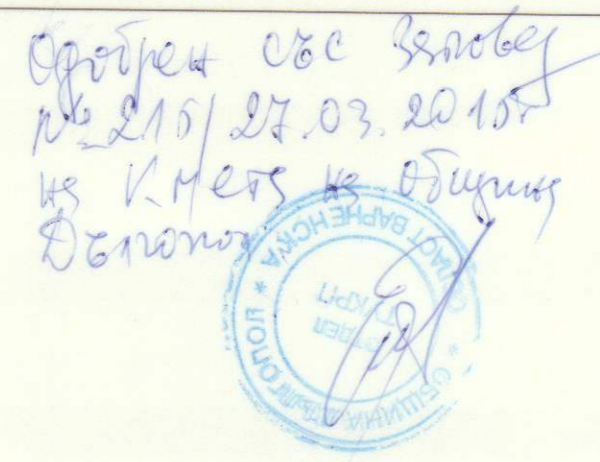 Одобрен със Заповед
№ 215/27.03.2015г.
на Кмета на община
Дългопол
ОБЩИНА ДЪЛГОПОЛ * ОБЛАСТ ВАРНЕНСКА *
ОТДЕЛ